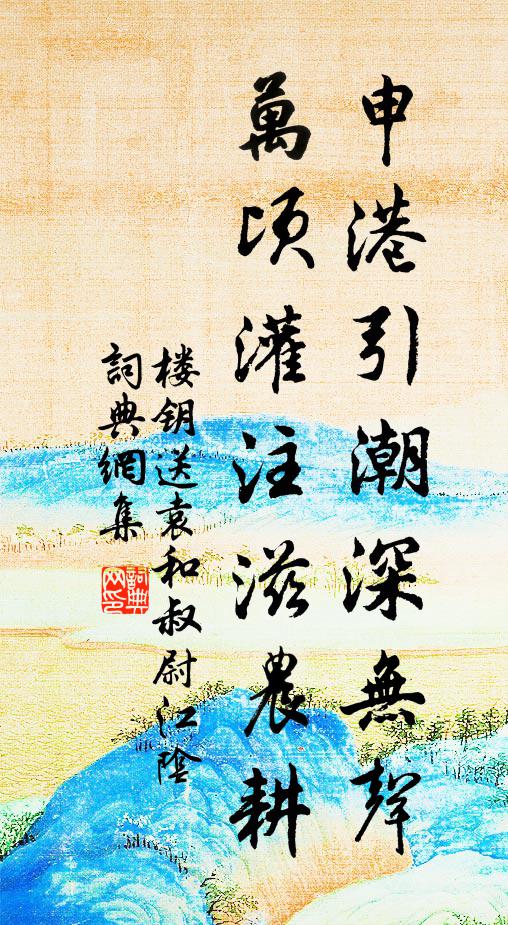 申港引潮深無聲
萬頃灌注滋農耕
楼钥送袁和叔尉江陰
詞典網集
詞典網印